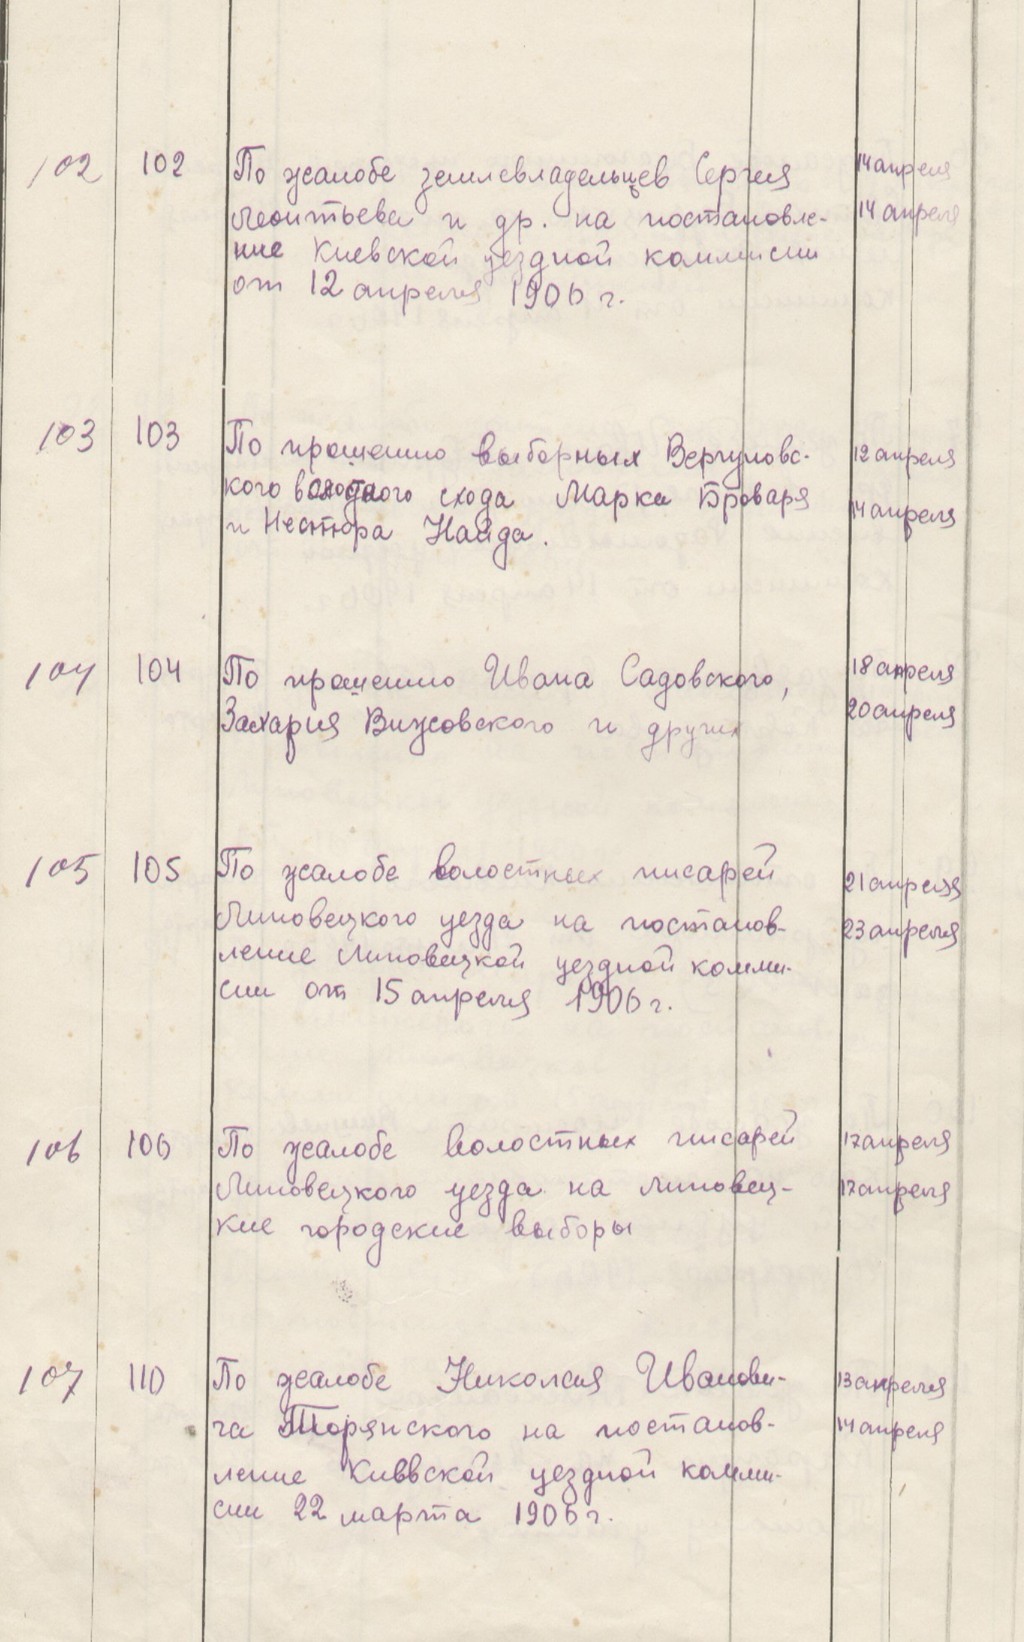 102 102 По жалобе землевладельцев Сергея 14 апреля
Леонтьева и др. на постановле- 14 апреля
ние Киевской уездной коммисии
от 12 апреля 1906 г.
103 103 По прошению выборных Вергуновс- 12 апреля
кого волостного схода Марка Броваря 14 апреля
и Нестора Найда.
104 104 По прошению Ивана Садовского, 18 апреля
Захария Вижовского и других 20 апреля
105 105 По жалобе волостных писарей 21 апреля
Липовецкого уезда на постанов- 23 апреля
ление Липовецкой уездной комми-
сии от 15 апреля 1906 г.
106 106 По жалобе волостных писарей 17 апреля
Липовецкого уезда на липовец- 17 апреля
кие городские выборы
107 110 По жалобе Николая Иванови- 13 апреля
ча Торянского на постанов- 14 апреля
ление Киевской уездной комми-
сии 22 марта 1906 г.